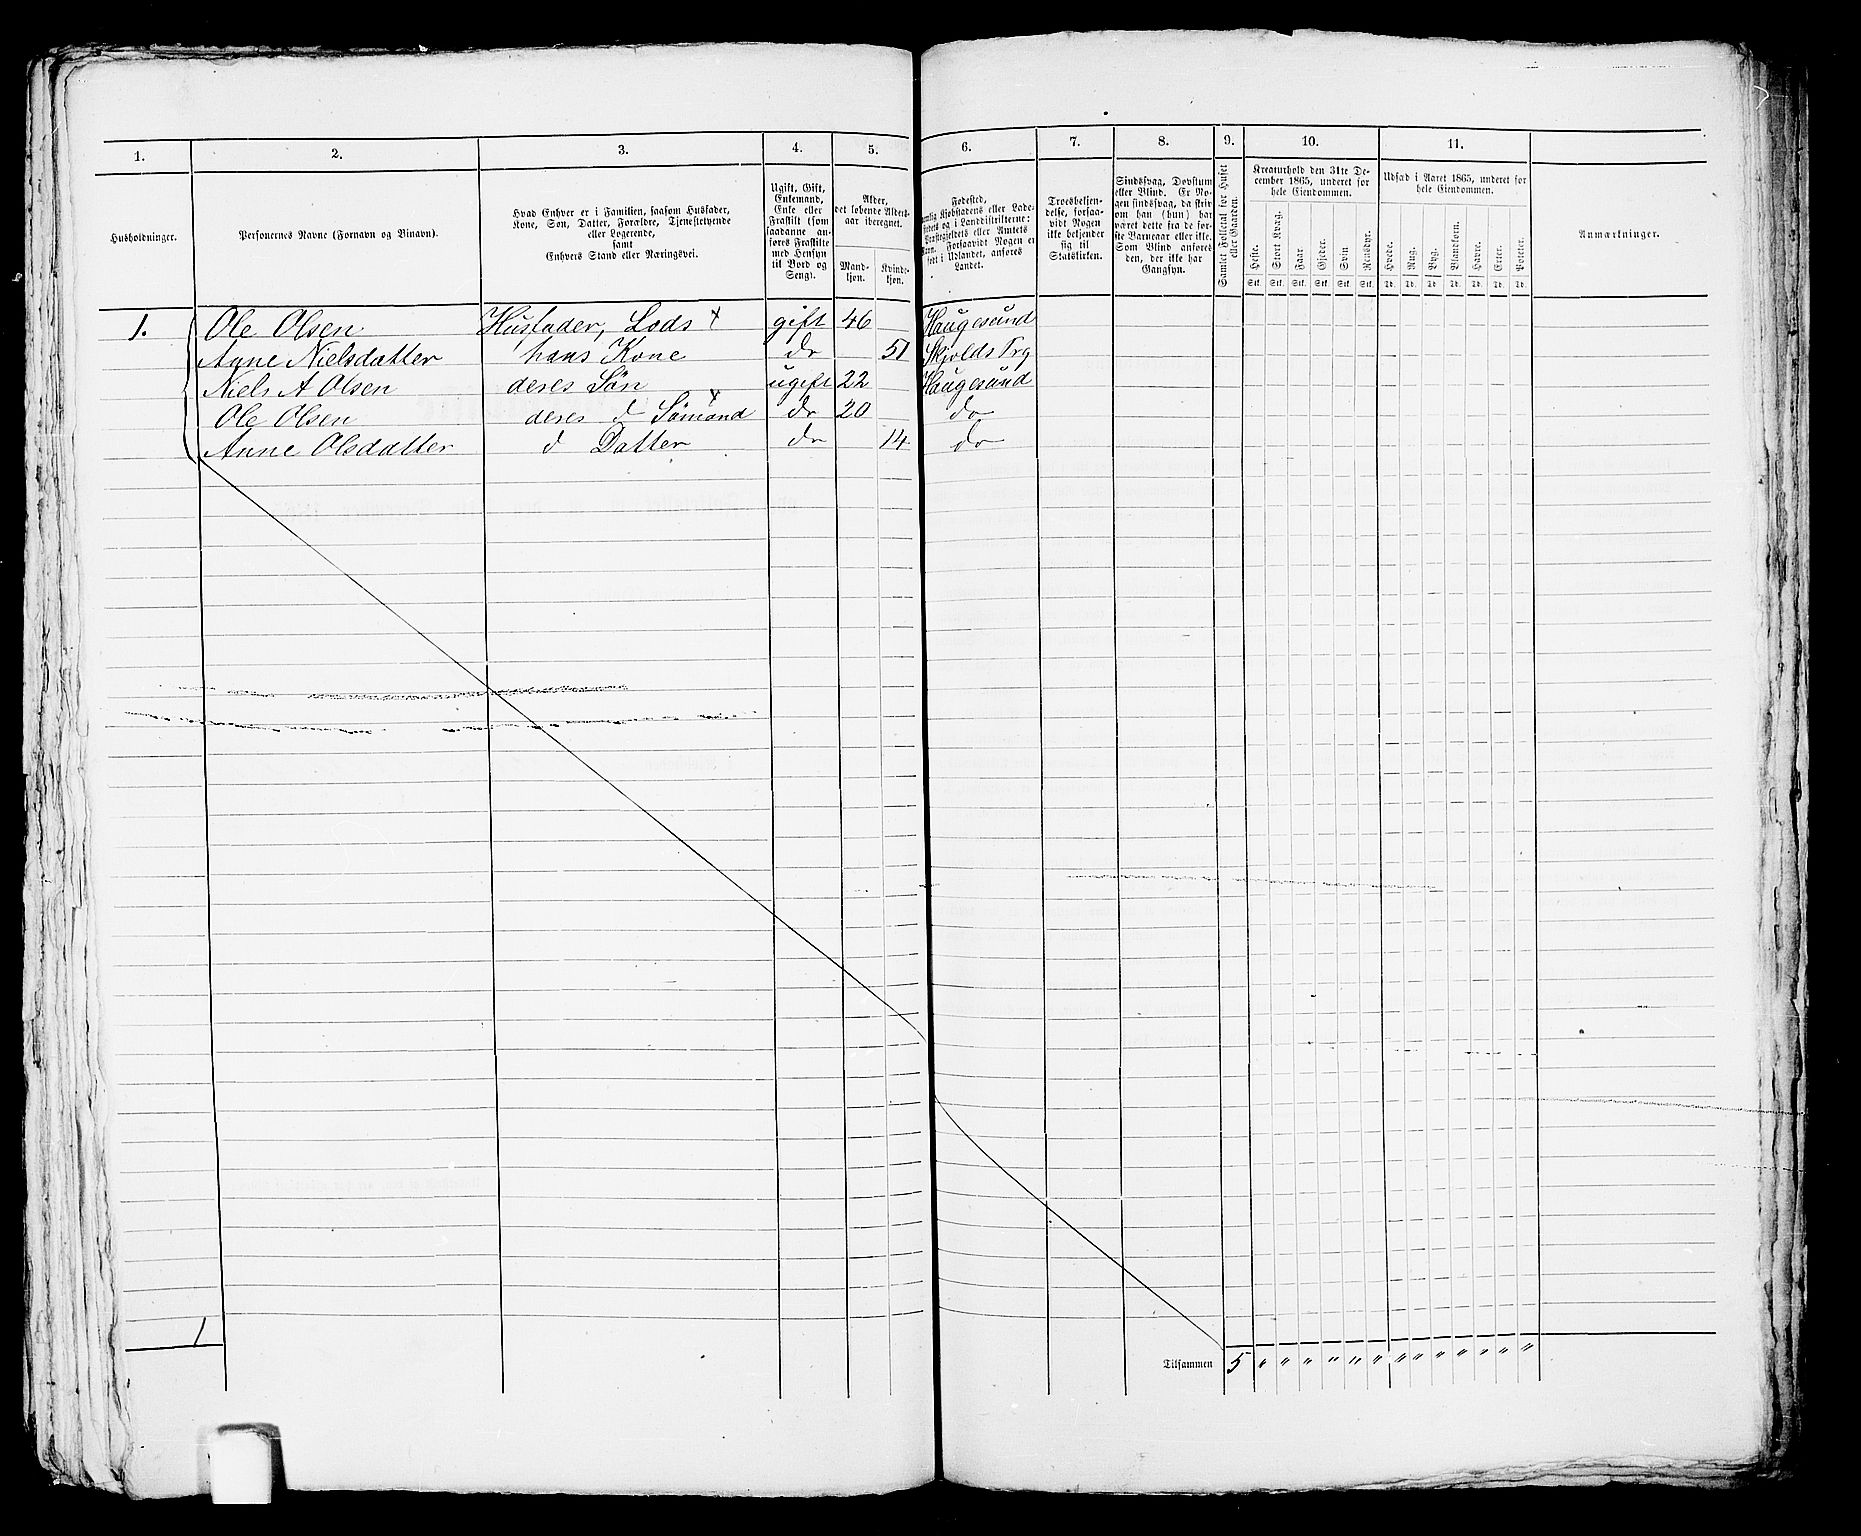 1. 2. 3. 4. 5. 6. 7. 8. 9. 10. 11.
Husholdninger.
Personernes Navne (Fornavn og Binavn).
Hvad Enhver er i Familien, saasom Husfader,
Kone, Søn, Datter, Forældre, Tjenestetyende
eller Logerende,
samt
Enhvers Stand eller Næringsvei.
Ugift, Gift,
Enkemand,
Enke eller
Fraskilt (som
saadanne an-
føres Fraskilte
med Hensyn
til Bord og
Seng).
Alder,
det løbende Alders-
aar iberegnet.
Mand-
kjøn.
Kvinde-
kjøn.
Fødested,
Kjøbstadens eller Lade-
og i Landdistrikterne:
Præstegjeldets eller Amtets
Navn. Forsaavidt Nogen er
født i Udlandet, anføres
Landet.
Troesbekjen-
delse, forsaa-
vidt Nogen
ikke bekjender
sig til
Statskirken.
Sindssvag, Døvstum
eller Blind. Er No-
gen sindssvag, da skriv
om han (hun) har
været dette fra de før-
ste Barneaar eller ikke.
Som Blind anføres
den, der ikke har
Gangsyn.
Samlet Folketal for Huset
eller Gaarden.
Kreaturhold den 31te De-
cember 1865, underet for
hele Eiendommen.
Heste. Stort Kvæg. Faar. Gjeder. Svin Rensdyr.
Stk. Stk. Stk. Stk. Stk. Stk.
Udsæd i Aaret 1865, underet for
hele Eiendommen.
Hvede. Rug. Byg. Blandkorn. Havre. Erter. Poteter.
Td. Td. Td. Td. Td. Td. Td.
Anmærkninger.
1. Ole Olsen Husfader, Lods x gift 46 Haugesund
Anne Nielsdatter hans Kone do 51 Skjolds Prg
Niels A Olsen deres Søn ugift 22 Haugesund
Ole Olsen deres d Sømand x do 20 do
Anne Olsdatter d Datter do 14 do
1
Tilsammen 5 " " " " " " " " " " " " "